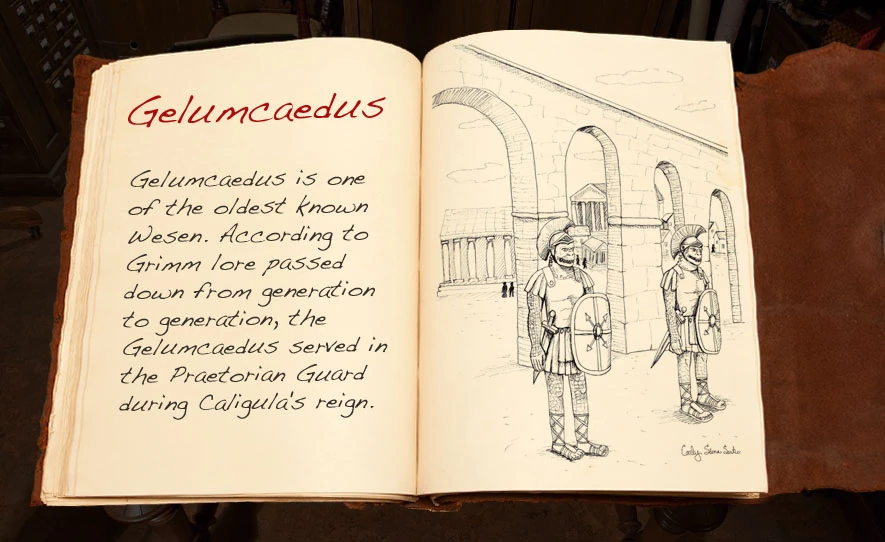 Gelumcaedus
Gelumcaedus is one
of the oldest known
Wesen. According to
Grimm lore passed
down from generation
to generation, the
Gelumcaedus served in
the Praetorian Guard
during Caligula's reign.